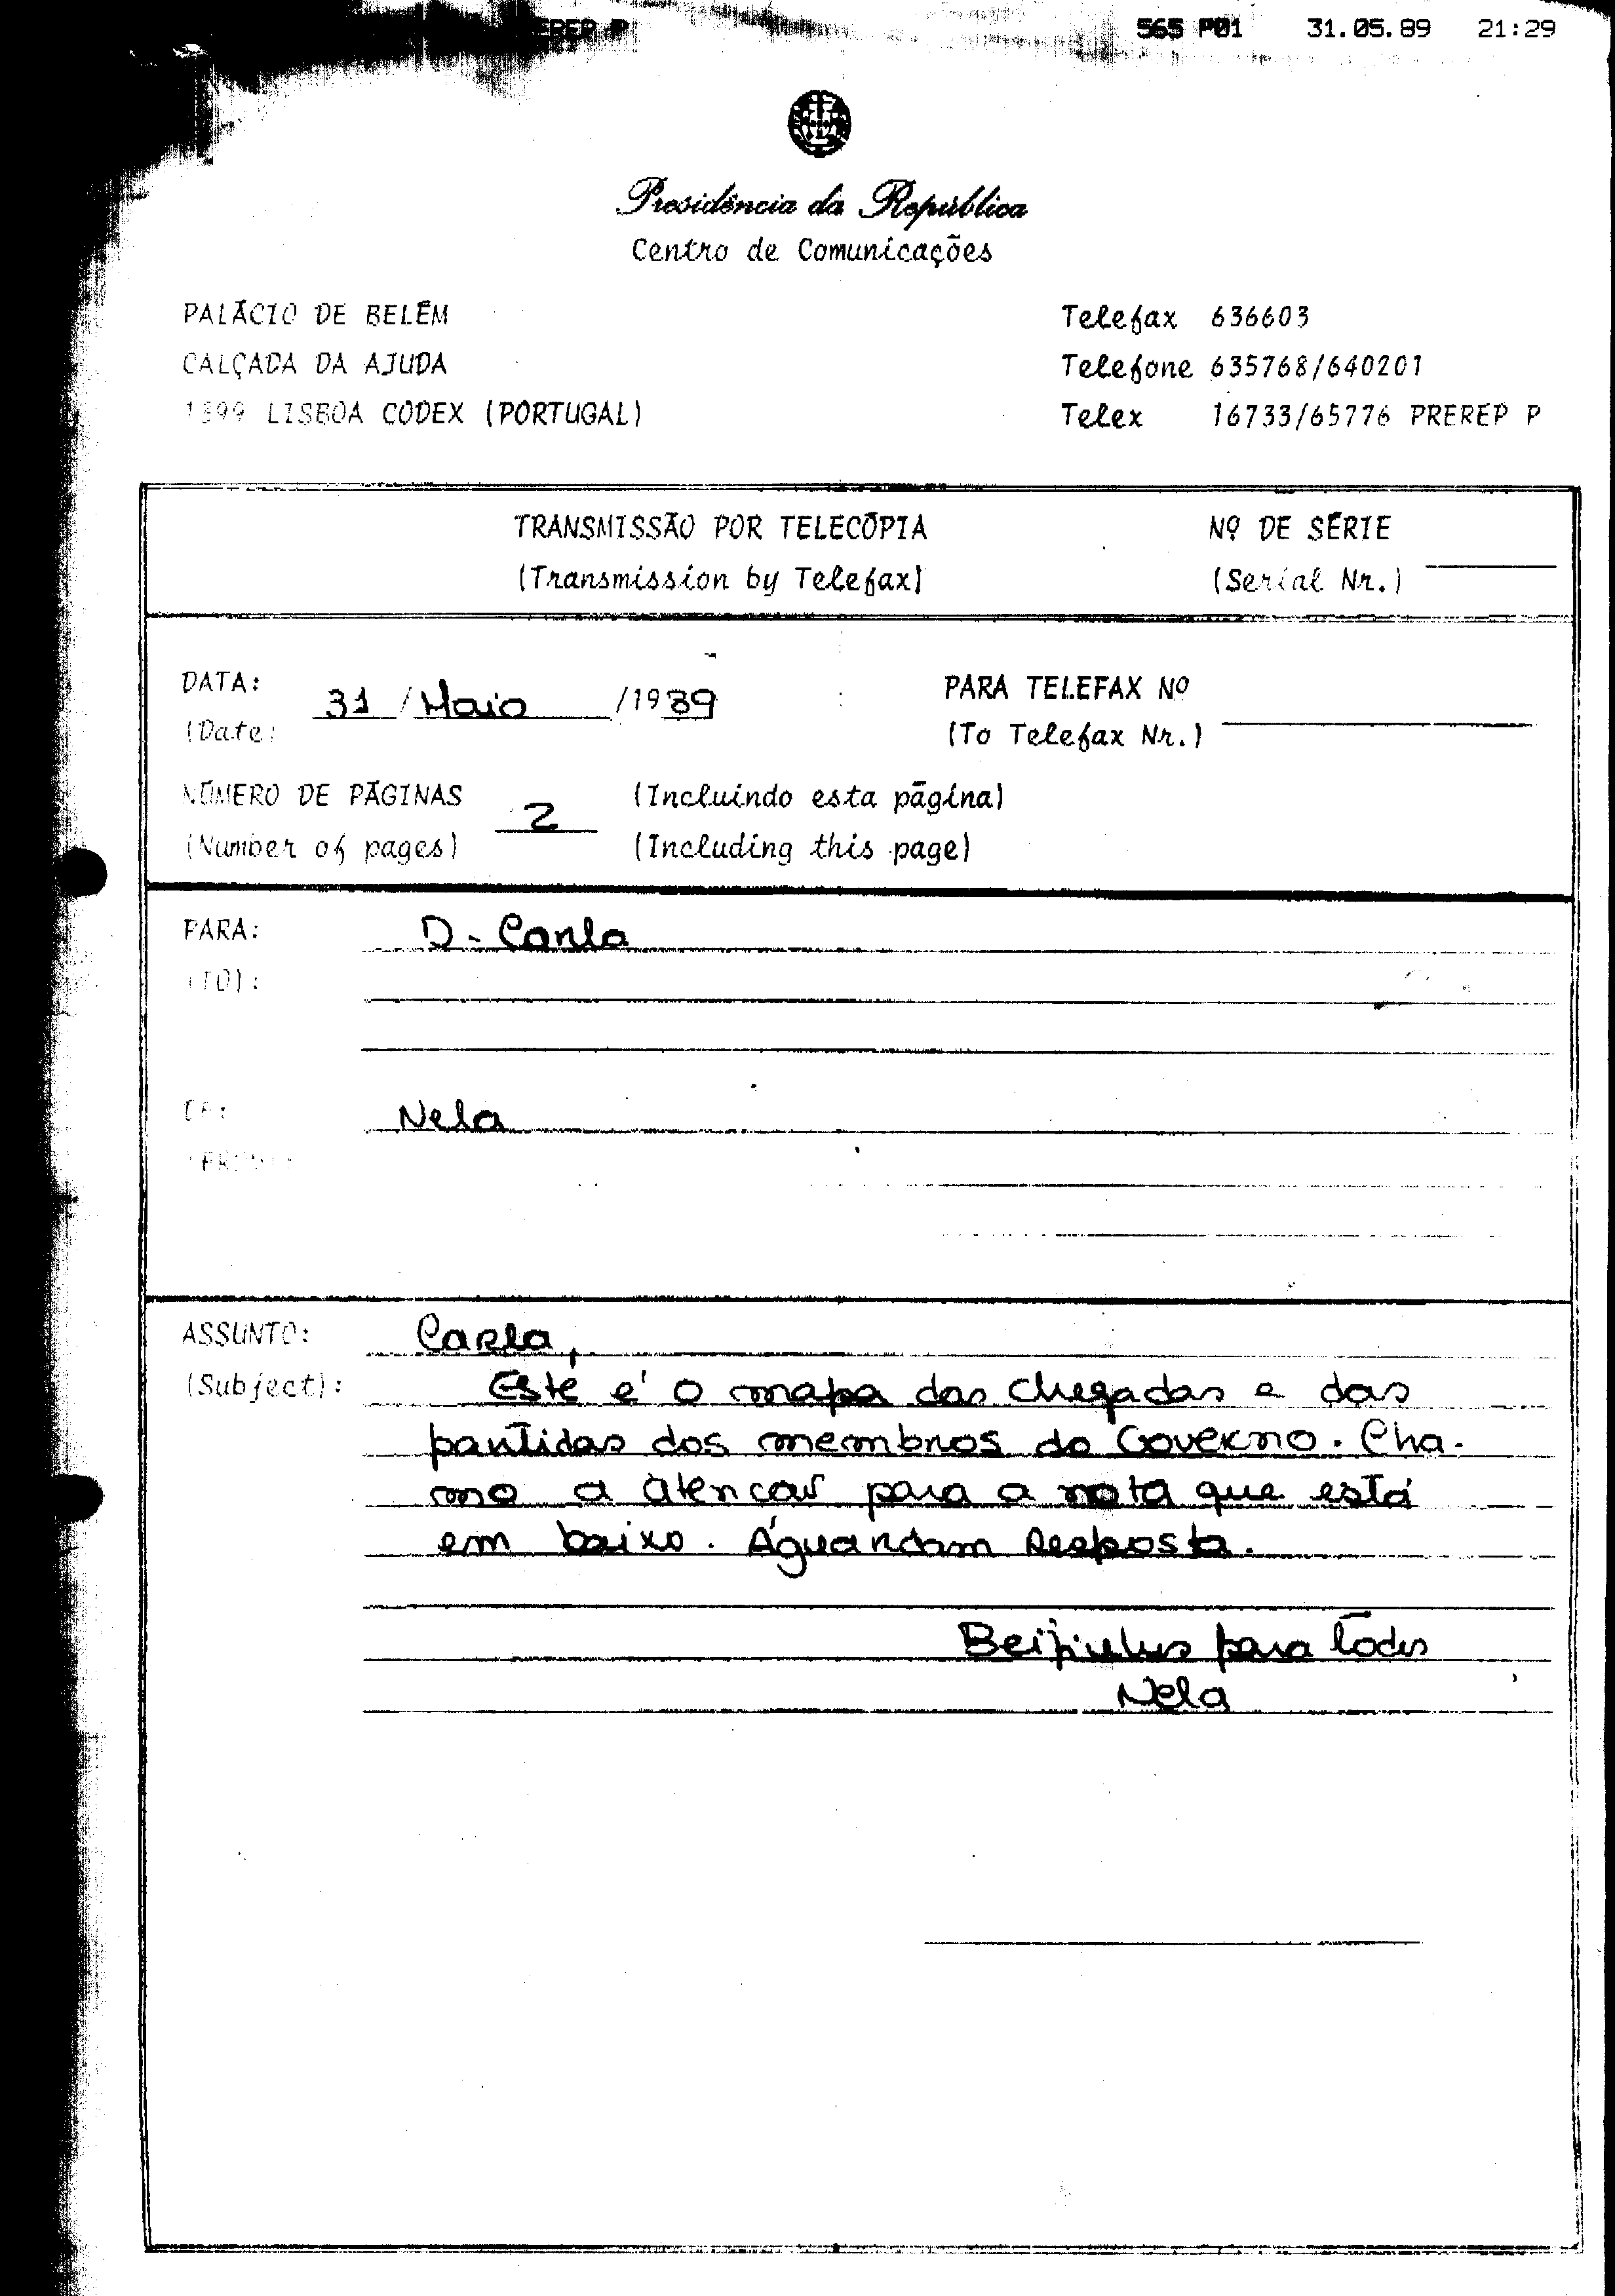 EREP P 565 P01 31.05.89 21:29
Presidência da República
Centro de Comunicações
PALÁCIO DE BELÉM Telefax 636603
CALÇADA DA AJUDA Telefone 635768/640201
1399 LISBOA CODEX (PORTUGAL) Telex 16733/65776 PREREP P
TRANSMISSÃO POR TELECÓPIA Nº DE SÉRIE
(Transmission by Telefax) (Serial Nr.)
DATA: 31 / Maio / 1989 PARA TELEFAX Nº
(Date: (To Telefax Nr.)
NÚMERO DE PÁGINAS 2 (Incluindo esta página)
(Number of pages) (Including this page)
PARA: D. Carla
(TO):
DE: Nela
(FROM):
ASSUNTO: Carla,
(Subject): Este é o mapa das chegadas e das
partidas dos membros do Governo. Cha-
mo a atencao para a nota que está
em baixo. Aguardam Resposta.
Beijinhos para todos
Nela